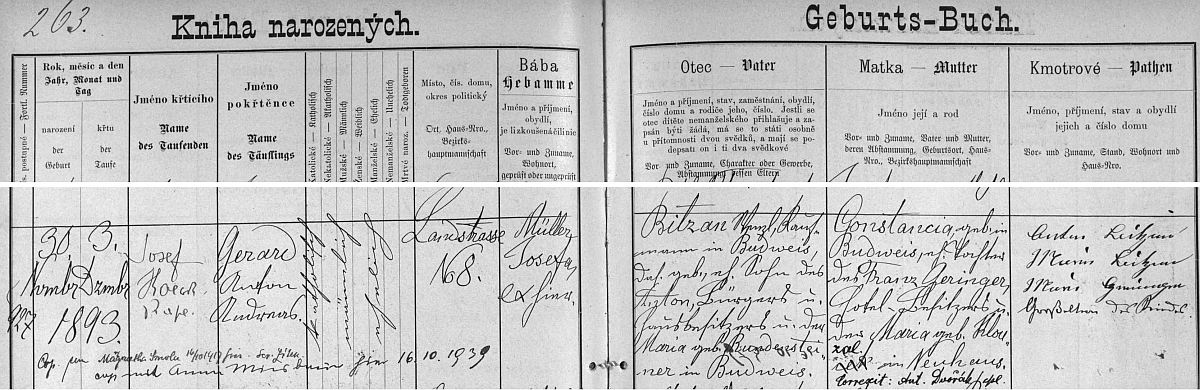 263.
Kniha narozených.
Geburts-Buch.
postupné — Fortl. Nummer
Rok, měsíc a den
Jahr, Monat und
Tag
narození
der
Geburt
křtu
der
Taufe
Jméno křtícího
Name
des Taufenden
Jméno
pokřtěnce
Name
des Täuflings
Katolické — Katholisch
Nekatolické — Akatholisch
Mužské — Männlich
Ženské — Weiblich
Manželské — Ehelich
Nemanželské — Unehelich
Mrtvě naroz. — Todtgeboren
Místo, čís. domu,
okres politický
Ort, Haus-Nro.,
Bezirks-
hauptmannschaft
Bába
Hebamme
Jméno a příjmení,
obydlí,
je li zkoušená čili nic
Vor- und Zuname,
Wohnort,
geprüft oder ungeprüft
Otec — Vater
Jméno a příjmení, stav, zaměstnání, obydlí,
číslo domu a rodiče jeho, číslo. Jestli se
otec dítěte nemanželského přihlašuje a za-
psán býti žádá, má se to státi osobně
u přítomnosti dvou svědků, a mají se po-
depsati on i ti dva svědkové
Vor- und Zuname, Charakter oder Gewerbe,
Abstammung dessen Eltern
Matka — Mutter
Jméno její a rod
Vor- und Zuname, Vater und Mutter,
deren Abstammung, Geburtsort, Haus-
Nro., Bezirkshauptmannschaft
Kmotrové — Pathen
Jméno, příjmení, stav a obydlí
jejich a číslo domu
Vor- und Zuname, Stand, Wohnort und
Haus-Nro.
30. 3.
Novmbr Dzmbr
927 1893.
Josef
Kap.
Gerard
Anton
Andreas.
katholisch
männlich
ehelich
Landstrasse
168.
Müller
Josefa,
ex. hier.
Bitzan Wenzl, Kauf-
mann in Budweis,
das. geb., e. Sohn des
Anton, Bürgers u.
Hausbesitzers u. der
Maria geb.
ner in Budweis.
Constancia, geb. in
Budweis, e. Tochter
des Franz Geringer,
Hotel-Besitzers u.
der Maria geb. Klou-
zal.
in Neuhaus.
Correxit: Ant. Dvořák
Anton
Maria
Maria Geringer
Großeltern des Kindes.
Cop.
cop. mit Anna hier 16.10.1939